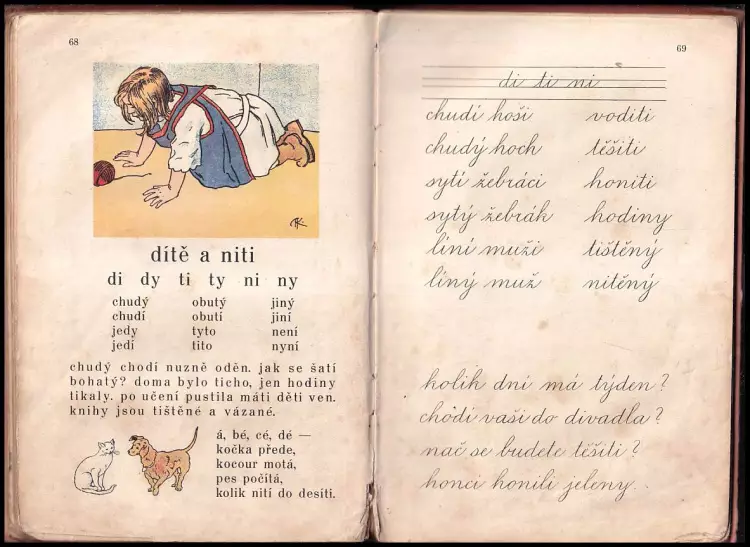 68
dítě a niti
di dy ti ty ni ny
chudý obutý jiný
chudí obutí jiní
jedy tyto není
jedí tito nyní
chudý chodí nuzně oděn. jak se šatí
bohatý? doma bylo ticho, jen hodiny
tikaly. po učení pustila máti děti ven.
knihy jsou tištěné a vázané.
á, bé, cé, dé —
kočka přede,
kocour motá,
pes počítá,
kolik nití do desíti.
69
di ti ni
chudí hoši voditi
chudý hoch těšiti
sytí žebráci honiti
sytý žebrák hodiny
líní muži tištěný
líný muž nitěný
kolik dní má týden?
chodí vaši do divadla?
nač se budete těšiti?
honci honili jeleny.